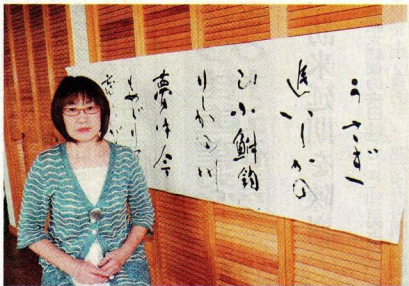 うさぎ
追いしかの
山小鮒釣
りしかの川
夢は今
もめぐり